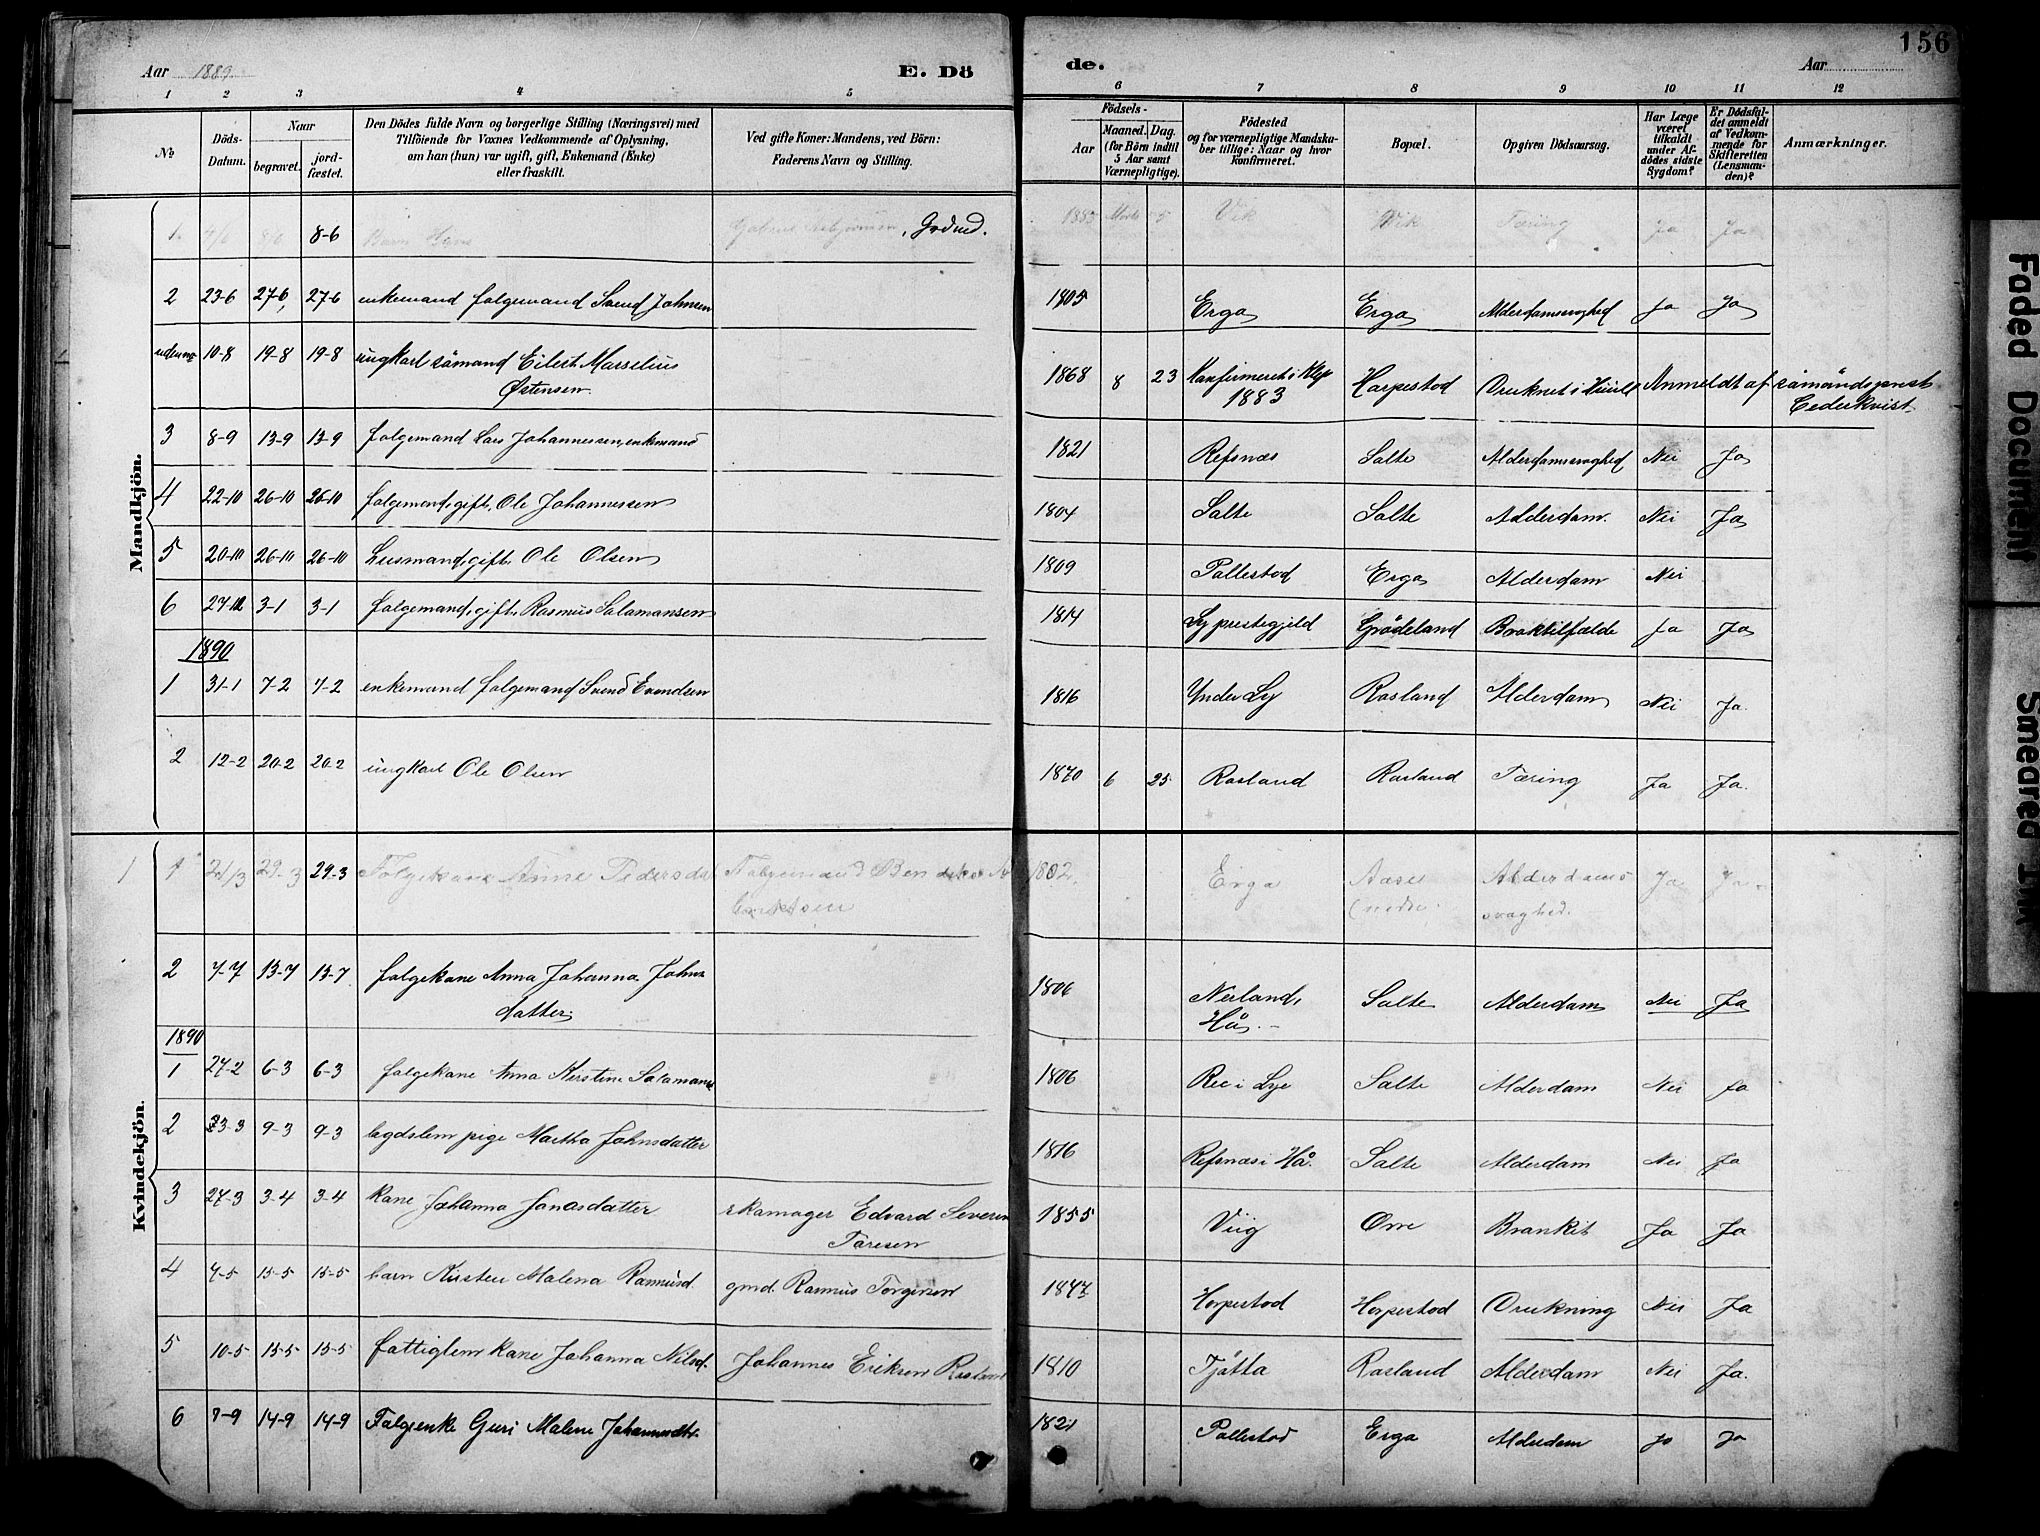 156
Aar 1889. E. Dö de. Aar
1 2 3 4 5 6 7 8 9 10 11 12
№
Döds-Datum.
Naar
begravet.
jord-fæstet.
Den Dödes fulde Navn og borgerlige Stilling (Næringsvei) med
Tilföiende for Voxnes Vedkommende af Oplysning,
om han (hun) var ugift, gift, Enkemand (Enke)
eller fraskilt.
Ved gifte Koner: Mandens, ved Börn:
Faderens Navn og Stilling.
Födsels-
Aar
Maaned. Dag.
(for Börn indtil
5 Aar samt
Værnepligtige).
Födested
og for værnepligtige Mandska-
ber tillige: Naar og hvor
Konfirmeret.
Bopæl.
Opgiven Dödsaarsag.
Har Læge
været
tilkaldt
under Af-
dödes sidste
Sygdom?
Er Dödsfal-
det anmeldt
af Vedkom-
mende for
Skifteretten
(Lensman-
den)?
Anmærkninger.
Mandkjön.
1. 8/6 8-6 Barn , Grdmd. 1885 5 Vik Vik Tæring Ja Ja
2 23-6 27-6, 27-6 enkemand folgemand Svend Johnsen 1805 Erga Erga Alderdamssvaghed Ja Ja
10-8 19-8 19-8 ungkarl sömand Eilert Marselius 1868 8 23 Konfirmeret i Klep Horpestad Druknet i Anmeldt af sömandsprest
Østensen. 1883 Cederkvist
3 8-9 13-9 13-9 folgemand Lars Johannessen, enkmand 1821 Refsnæs Salte Alderdamssvaghed Nei Ja
4 22-10 26-10 26-10 folgemand, gift, Ole Johannessen 1804 Salte Salte Alderdam. Nei Ja
5 20-10 26-10 26-10 Husmand, gift, Ole Olsen 1809 Pollestad Erga Alderdam Nei
6 27-12 3-1 3-1 folgemand, gift, Rasmus Salamonsen 1814 Ly prestegjeld Grödeland Braktilfælde Ja Ja
1890
1 31-1 7-2 7-2 enkemand folgemand Svend Evendsen 1816 Under Ly Rosland Alderdam Nei Ja.
2 12-2 20-2 20-2 ungkarl Ole Olsen 1870 6 25 Rosland Rosland Tæring Ja Ja.
Kvindekjön.
1 1 21/3 29-3 29-3 Folgekone Anne Pedersda Folgemand 1802. Erga Aase Alderdoms Ja Ja.
(nedre. svaghed.
2 7-7 13-7 13-7 folgekane Anna Johanna Johns 1806 Nerland, Salte Alderdam Nei Ja
datter. Hå.
1890
1 27-2 6-3 6-3 folgekane Anna Kirstine Salamons 1806 Ree i Lye Salte Alderdam Nei Ja
2 3-3 9-3 9-3 legdslem pige Martha Johnsdatter 1816 Refsnæs i Hå. Salte Alderdam Nei Ja
3 27-3 3-4 3-4 kane Johanna Jonasdatter skamager Edvard Severin 1855 Viig Orre Brankit Ja Ja
Taresen
4 7-5 15-5 15-5 barn Kirsten Malena Rasmusd. gmd. Rasmus Torgersen 1847 Horpestad Horpestad Drukning Nei Ja
5 10-5 15-5 15-5 fattiglem kane Johanna Nilsd. Johannes Eriksen Rosland 1810 Tjötta Rosland Alderdam Nei Ja.
6 7-9 14-9 14-9 Folgeenke Guri Malene Johannesdtr. 1821 Pollestad Erga Alderdom Ja Ja
Faded Document
Smeared Ink